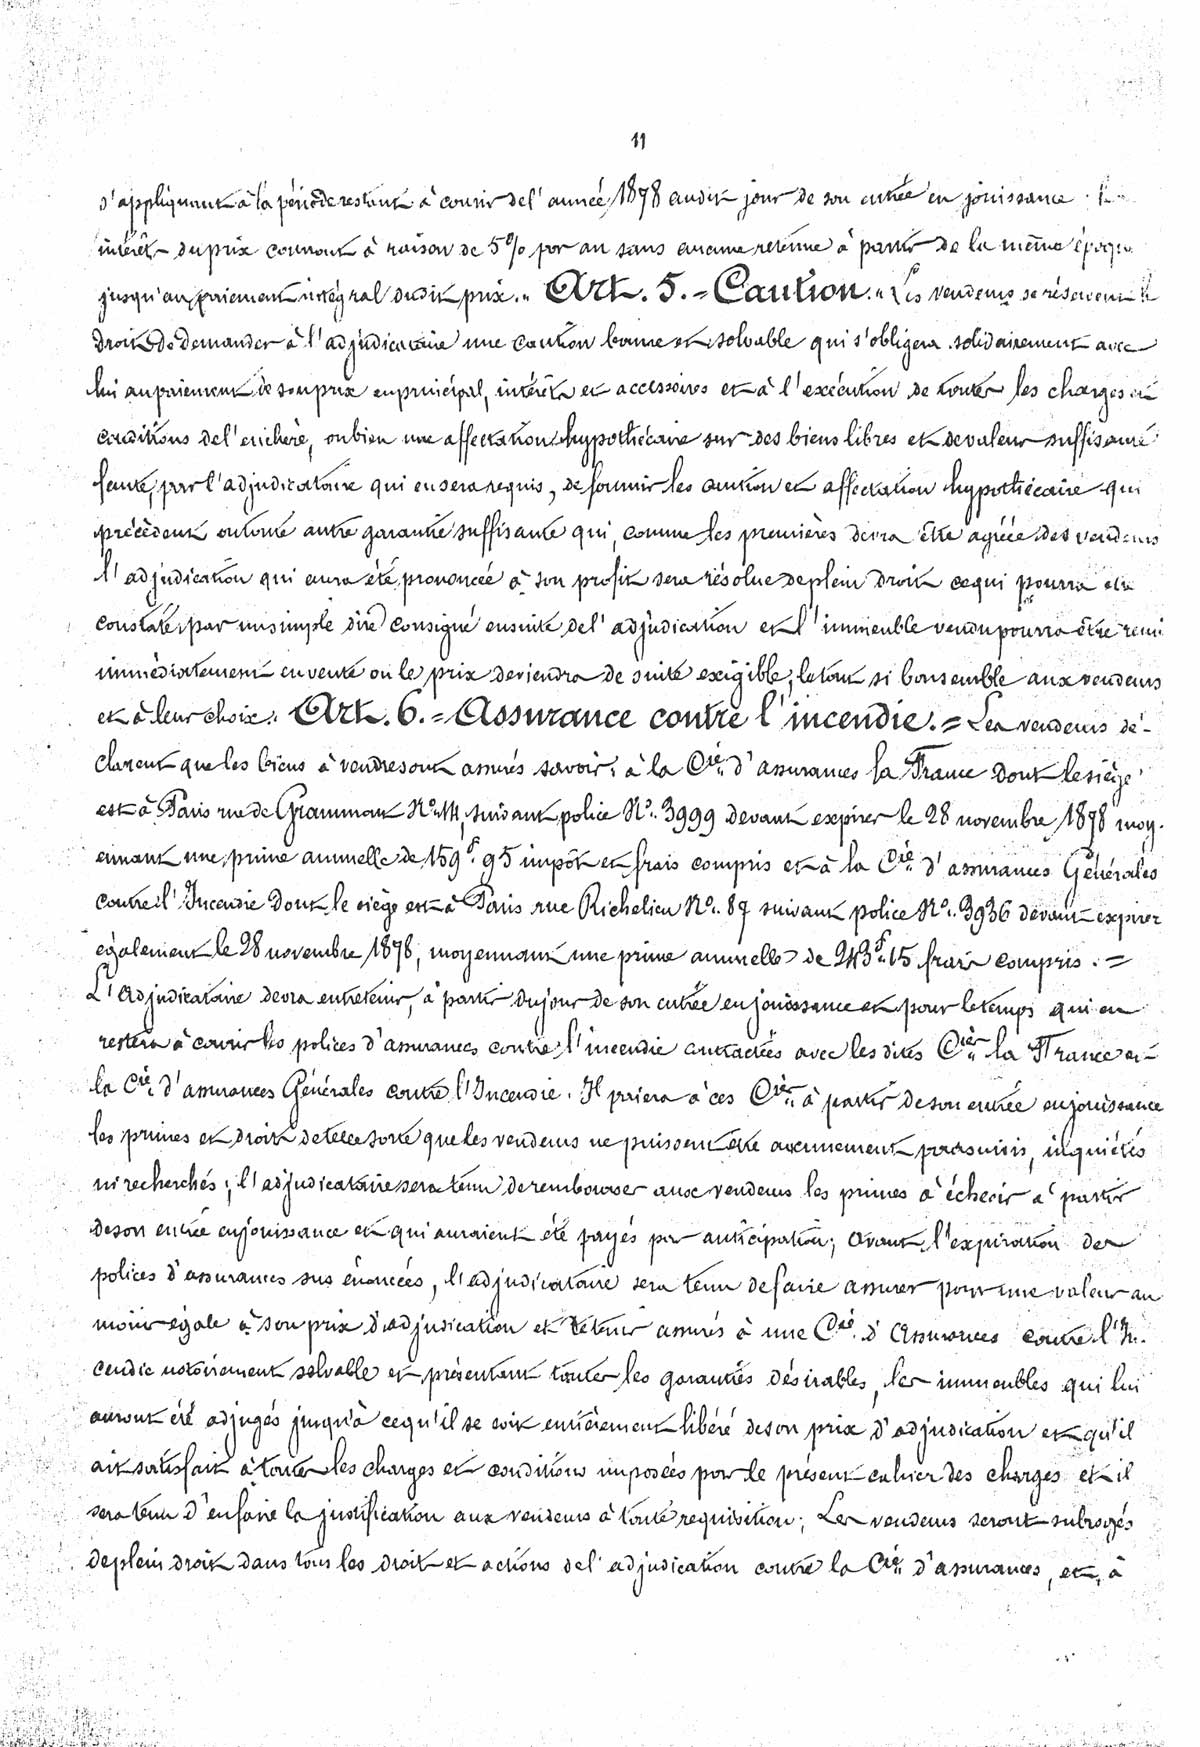 11
s'appliquant à la période restant à courir de l'année 1878 audit jour de son entrée en jouissance.
intérêts du prix courront à raison de 5% par an sans aucune retenue à partir de la même époque
jusqu'au paiement intégral dudit prix.= Art. 5.= Caution.= Les vendeurs se réservent le
droit de demander à l'adjudicataire une caution bonne et solvable qui s'obligera solidairement avec
lui au paiement de son prix en principal, intérêts et accessoires et à l'exécution de toutes les charges et
conditions de l'enchère, ou bien une affectation hypothécaire sur des biens libres et de valeur suffisante
faute, par l'adjudicataire qui en sera requis, de fournir les caution et affectation hypothécaire qui
précèdent ou toute autre garantie suffisante qui, comme les premières devra être agréée des vendeurs
l'adjudication qui aura été prononcée à son profit sera résolue de plein droit ce qui pourra être
constaté par un simple dire consigné ensuite de l'adjudication et l'immeuble vendu pourra être remi
immédiatement en vente ou le prix deviendra de suite exigible, le tout si bon semble aux vendeurs
et à leur choix.= Art. 6.= Assurance contre l'incendie.= Les vendeurs dé-
clarent que les biens à vendre sont assurés savoir: à la Cie d'assurances la France dont le siège
est à Paris rue de Grammont No 14, suivant police No. 3999 devant expirer le 28 novembre 1878 moy-
ennant une prime annuelle de 159f.95 impôt et frais compris et à la Cie d'assurances Générales
contre l'Incendie dont le siège est à Paris rue Richelieu No. 87 suivant police No. 3936 devant expirer
également le 28 novembre 1878, moyennant une prime annuelle de 243f.15 frais compris.=
L'Adjudicataire devra entretenir, à partir du jour de son entrée en jouissance et pour le temps qui en
restera à courir les polices d'assurances contre l'incendie contractées avec les dites Cies la France et
la Cie d'assurances Générales contre l'Incendie. Il paiera à ces Cies à partir de son entrée en jouissance
les primes et droit de telle sorte que les vendeurs ne puissent être aucunement poursuivis, inquiétés
ni recherchés; l'adjudicataire sera tenu de rembourser aux vendeurs les primes à échecir à partir
de son entrée en jouissance et qui auraient été payés par anticipation; avant l'expiration des
polices d'assurances sus énoncées, l'adjudicataire sera tenu de faire assurer pour une valeur au
moins égale à son prix d'adjudication et tenir assurés à une Cie d'Assurances contre l'In-
cendie notoirement solvable et présentant toutes les garanties désirables, les immeubles qui lui
auront été adjugés jusqu'à ce qu'il se soit entièrement libéré de son prix d'adjudication et qu'il
ait satisfait à toutes les charges et conditions imposées par le présent cahier des charges et il
sera tenu d'en faire la justification aux vendeurs à toute requisition; Les vendeurs seront subrogés
de plein droit dans tous les droit et actions de l'adjudication contre la Cie d'assurances, et, à